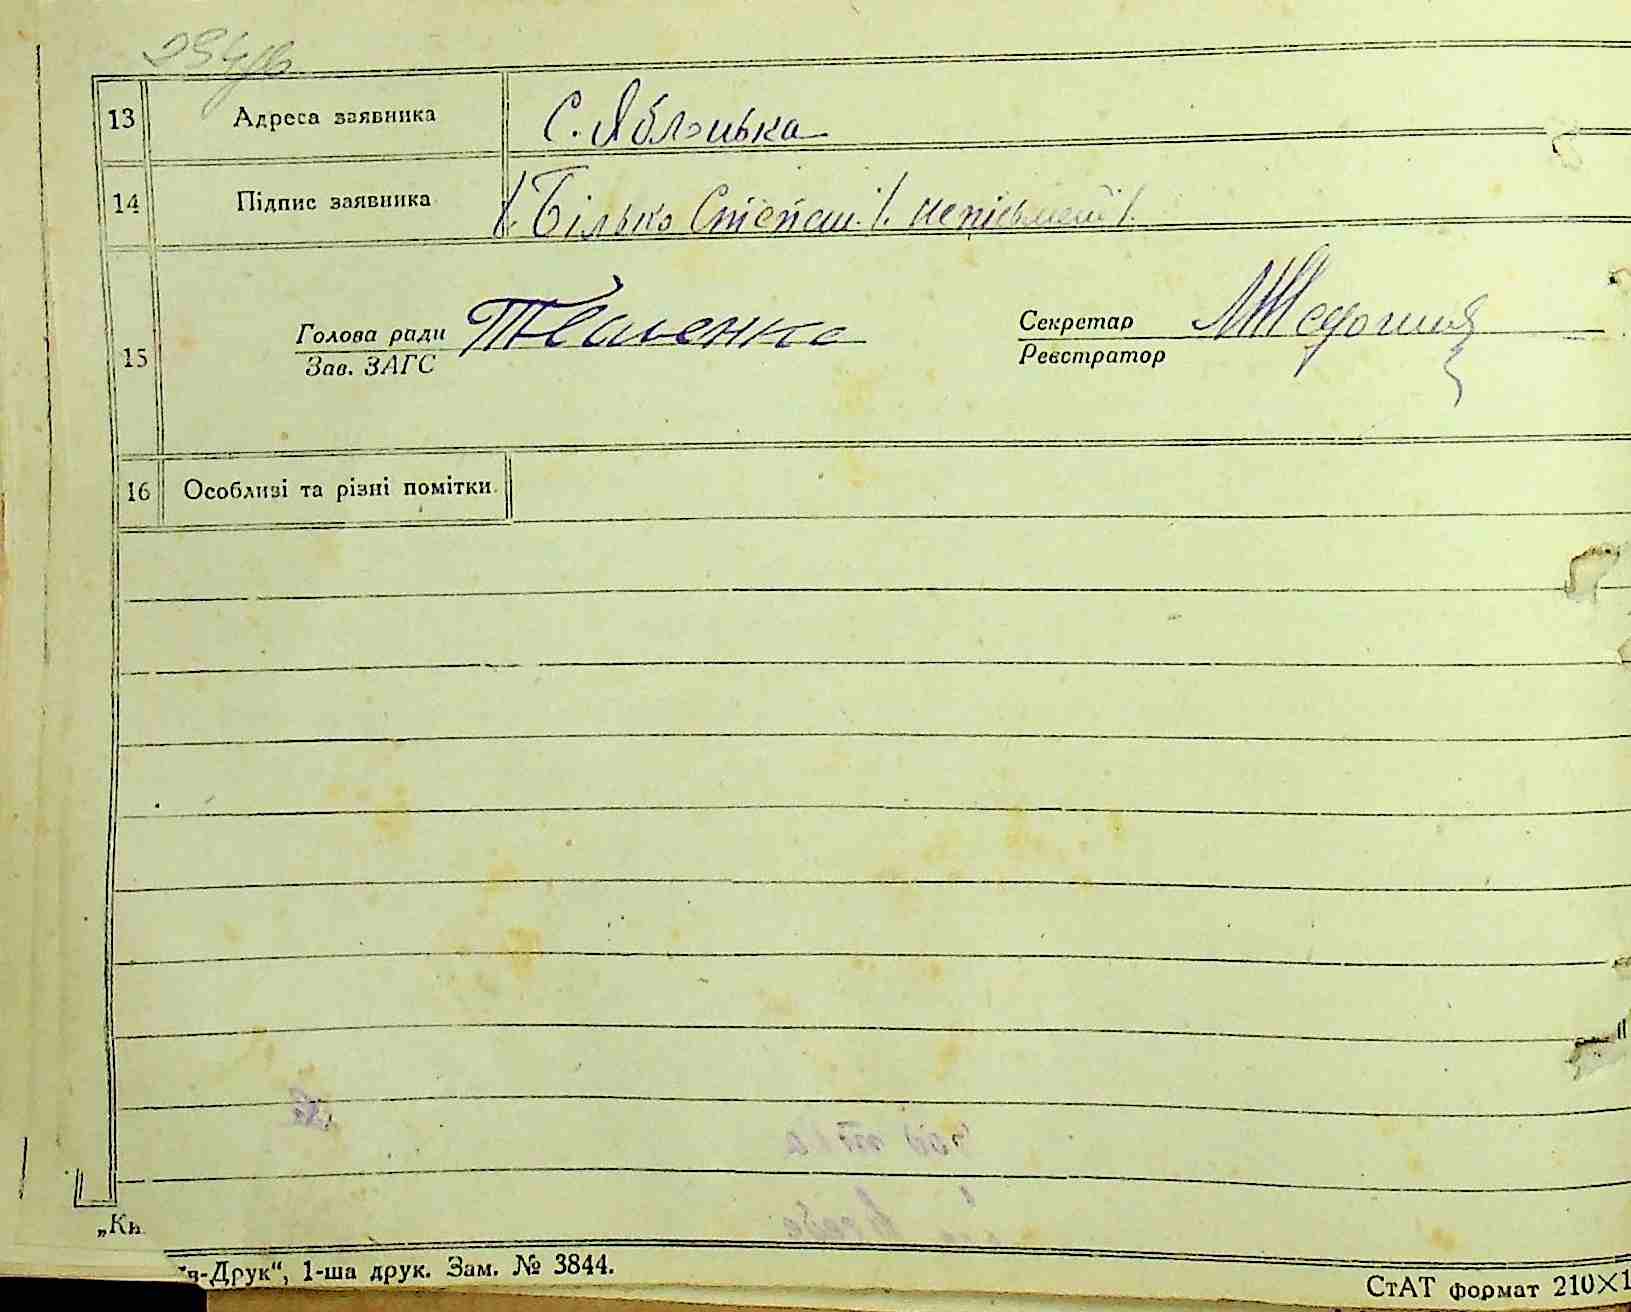 294/в
13 Адреса заявника С. Яблонька
14 Підпис заявника /. Білько Степан /. непісьмений /.
Голова ради Ткаленко Секретар
15 Зав. ЗАГС Реєстратор
16 Особливі та різні помітки.
„Кн
я-Друк“, 1-ша друк. Зам. № 3844.
СтАТ формат 210×1